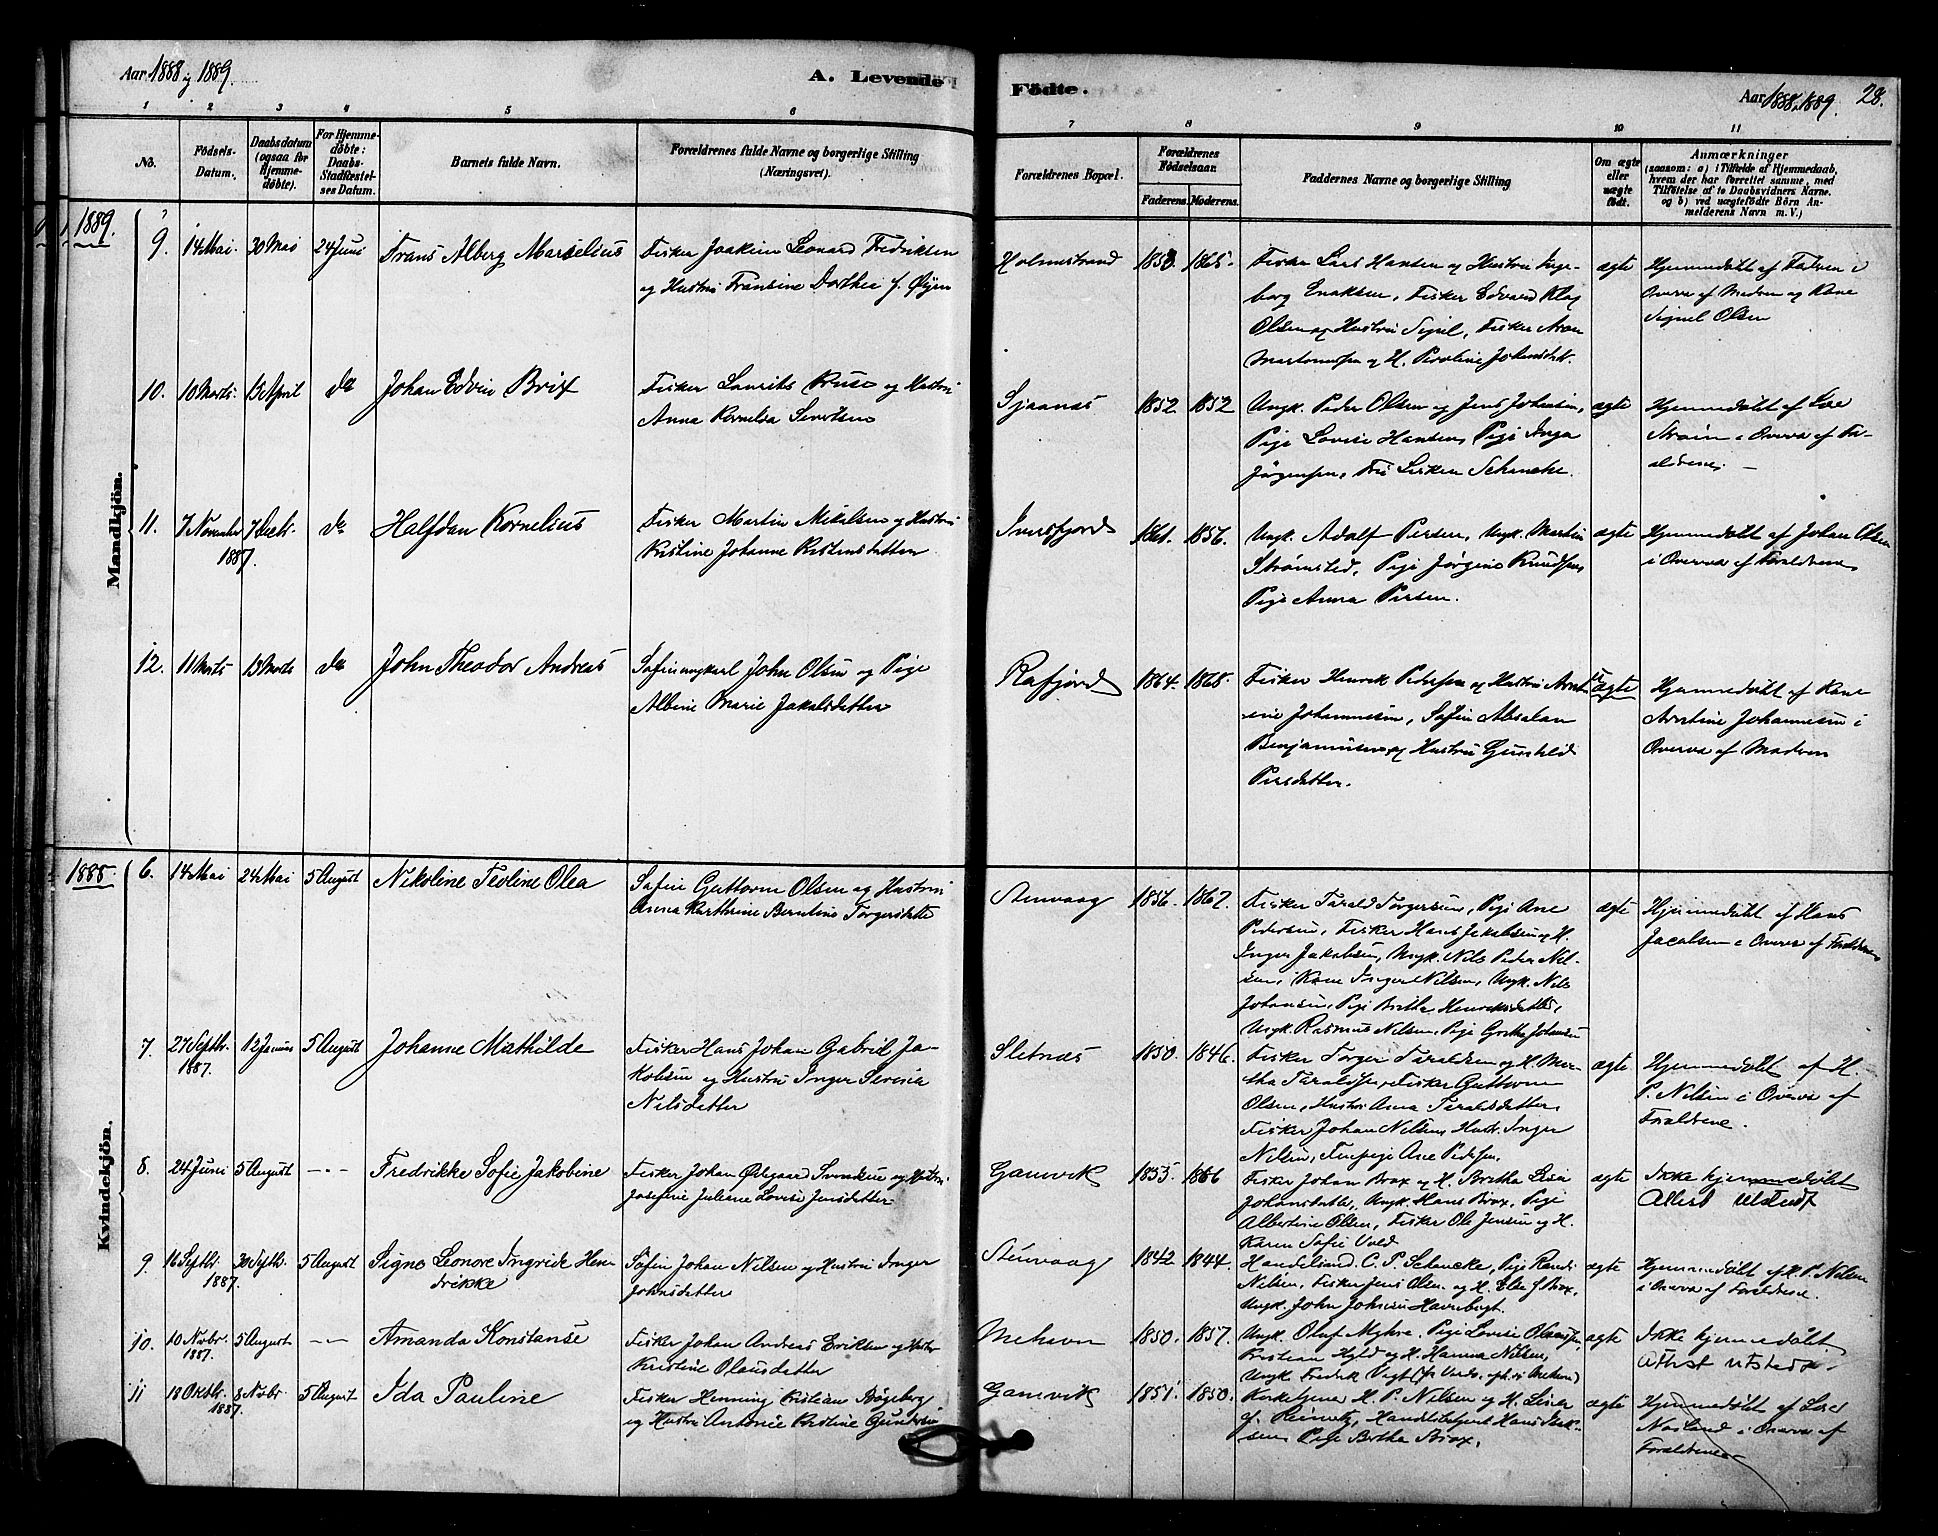 Aar 1888 & 1889.
A. Levende
Födte.
Aar 1888 & 1889.
28.
1 2 3 4 5 6 7 8 9 10 11
No.
Födsels-Datum.
Daabsdatum (ogsaa for Hjemmedöbte).
For Hjemmedöbte: Daabs-Stadfæstelses Datum.
Barnets fulde Navn.
Forældrenes fulde Navne og borgerlige Stilling (Næringsvei).
Forældrenes Bopæl.
Forældrenes Födselsaar.
Faderens. Moderens.
Faddernes Navne og borgerlige Stilling
Om ægte eller uægte födt.
Anmærkninger
(saasom: a) i Tilfælde af Hjemmedaab,
hvem der har forrettet samme, med
Tilföielse af to Daabsvidners Navne.
og b) ved uægtefödte Börn An-
melderens Navn m. V.)
Mandkjön.
1889.
9. 14 Mai 30 Mai 24 Juni Frans Alberg Marselius
Fisker Joakim Leonard Fredriksen
og Hustru Fransine Dorthea f. Øijen
Holmstrand 1858 1865.
Fisker Lars Hansen og Hustru Inge-
borg Enoksen, Fisker Edvard Klog
Olsen og Hustru Signel, Fisker Aron
og H. Peroline Johansdat.
ægte
Hjemmedøbt af Fadren i
Overvær af Madren og Kone
Signel Olsen
10. 10 Marts. 13 April do Johan Edvin Brix
Fisker Laurits Kruse og Hustru
Anna Kornelia Sivertsen
Sjaanæs 1852. 1852
Ungk. Peder Olsen og Jens Johansen,
Pige Lovise Hansen, Pige Inga
Jørgensen, Frk. Lisken Schancke.
ægte
Hjemmedøbt af Lose
Strøm i Overvær af Fo-
ældrene. —
11. 7 November 1887. 7 Decbr. do Halfdan Kornelius
Fisker Martin Mikalsen og Hustru
Kristine Johanne Kristensdatter
Iversfjord 1861. 1856.
Ungk. Adolf Persen, Ungk. Martin
Strømsted, Pige Jørgine Knudsen,
Pige Anna Persen.
ægte
Hjemmedøbt af Johan Olsen
i Overvær af Forældrene
12. 11 Marts 13 Marts do John Theodor Andreas
Søfin ungkarl John Olsen og Pige
Albine Marie Jakobsdatter
Rafjord 1864. 1868.
Fisker Henrik Pedersen og Hustru Arnt-
ine Johannesen, Søfin Absalon
Benjaminsen og Hustru Gunhild
Persdatter.
uægte
Hjemmedøbt af Kone
Arntine Johannesen i
Overvær af Madren
Kvindekjön.
1888.
6. 14 Mai 24 Mai 5 August Nikoline Teoline Olea
Søfin Guttorm Olsen og Hustru
Anna Kathrine Berntine Torgersdatter
Stenvaag 1856. 1862.
Fisker Tarald Torgersen, Pige Ane
Pedersen, Fisker Hans Jakobsen og H.
Inger Jakobsen, Ungk. Nils Peder Nil-
sen, Kone Inger Nilsen, Ungk. Nils
Johansen, Pige Brithe Henriksdatter,
Ungk. Rasmus Nilsen, Pige Grethe Johansen
ægte
Hjemmedøbt af Hans
Jacobsen i Overvær af Forældrene
7. 27 Septbr. 1887. 12 Januar 5 August Johanne Mathilde
Fisker Hans Johan Gabriel Ja-
kobsen og Hustru Inger Serena
Nilsdatter
Sletnæs 1850. 1846.
Fisker Torger Taraldsen og H. Mar-
tha Taraldsen, Fisker Guttorm
Olsen, Hustru Anna Taraldsdatter,
Fisker Johan Nilsen, Hust. Inger
Nilsen, Pige Ane Pedersen.
ægte
Hjemmedøbt af H.
P. Nilsen i Overvær af
Forældrene.
8. 24 Juni 5 August — Fredrikke Sofie Jakobine
Fisker Johan Ødegaard Svendsen og Hustru
Josefine Juliane Lovise Jensdatter
Gamvik 1855. 1866
Fisker Johan Brox og H. Bretha Lisa
Johansdatter, Ungk. Hans Brox, Pige
Albertine Olsen, Fisker Ole Jensen og H.
Karen Sofie Vold
ægte
Ikke hjemmedøbt
Attest Udstedt
9. 16 Septbr. 1887. 30 Septbr. 5 August Signe Leonore Ingride Hen-
drikke
Søfin Johan Nilsen og Hustru Inger
Johnsdatter
Stenvaag 1842. 1844.
Handelsmd. C. P. Schancke, Pige Randi
Nilsen, Fisker Jens Olsen og H. Else f. Brox,
Ungk. John Johnsen Havnbugt.
ægte
Hjemmedøbt af H. P. Nilsen
i Overvær af Forældrene.
10. 10 Novbr. 1887. 5 August — Amanda Konstanse
Fisker Johan Andreas Eriksen og Hustru
Kristine Olausdatter
Mehavn 1850. 1857.
Ungk. Oluf Myhre, Pige Lovise Olaussen,
Kristian Hyld og H. Hanna Nilsen,
Ungk. Fredrik Vigt
ægte
Ikke hjemmedøbt.
Attest utstedt.
11 18 Oktbr. 1887. 8 Novbr 5 August Ida Pauline
Fisker Henning Kristian Bøgeberg
og Hustru Antonie Kristine Gundersen
Gamvik 1851. 1850.
Kirketjener H. P. Nilsen og H. Lisa
f. Reinertz, Handelsbetjent Hans Isak-
sen, Pige Bertha Brox.
ægte
Hjemmedøbt af Lærer
Nosland i Overvær af
Forældrene